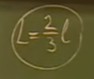 L = 2/3 l